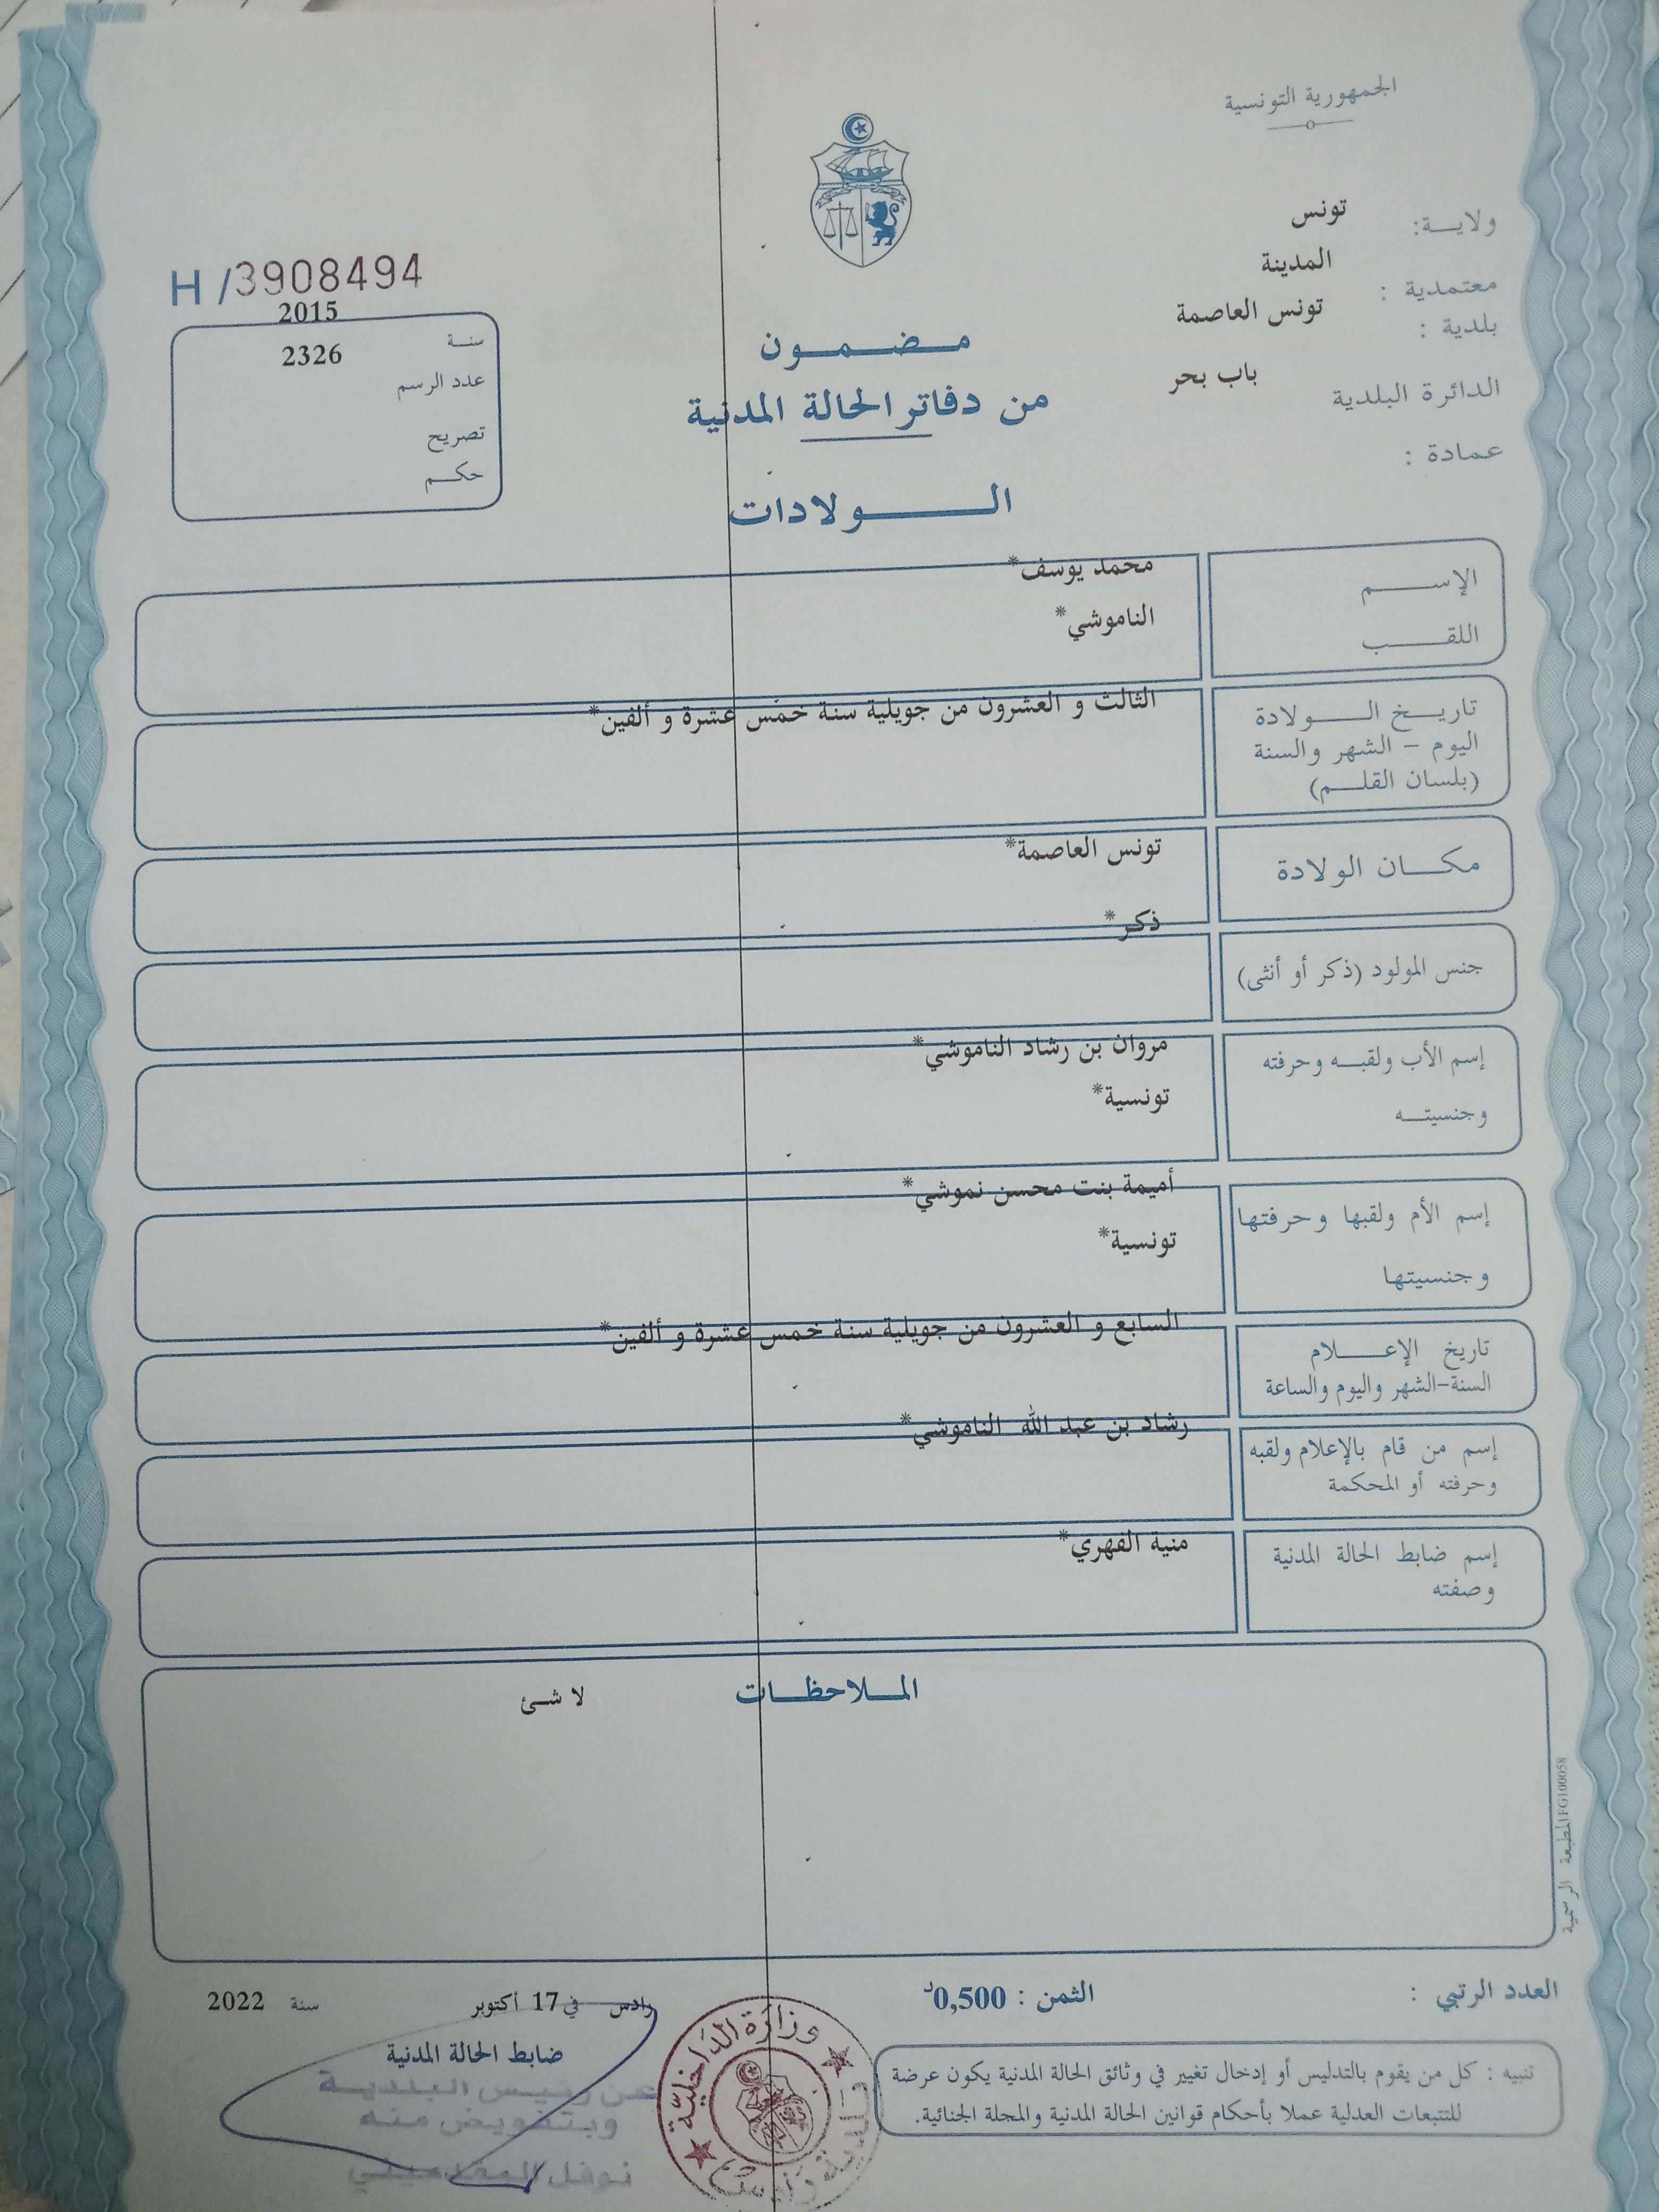 الجمهورية التونسية
ولايـــة: تونس
معتمدية : المدينة
بلدية : تونس العاصمة
الدائرة البلدية باب بحر
عمادة :
H /3908494
سنـة 2015
عدد الرسم 2326
تصريح
حكـــم
مــضــمــون
من دفاتر الحالة المدنية
الـــولادات
الإســـم محمد يوسف*
اللقـــب الناموشي*
تاريـــخ الـــولادة الثالث و العشرون من جويلية سنة خمس عشرة و ألفين*
اليوم - الشهر والسنة
(بلسان القلـــم)
مكـــان الولادة تونس العاصمة*
جنس المولود (ذكر أو أنثى) ذكر*
إسم الأب ولقبـــه وحرفته مروان بن رشاد الناموشي*
وجنسيتـــه تونسية*
إسم الأم ولقبها وحرفتها أميمة بنت محسن نموشي*
وجنسيتها تونسية*
تاريخ الإعـــلام السابع و العشرون من جويلية سنة خمس عشرة و ألفين*
السنة-الشهر واليوم والساعة
إسم من قام بالإعلام ولقبه رشاد بن عبد الله الناموشي*
وحرفته أو المحكمة
إسم ضابط الحالة المدنية منية الفهري*
وصفته
الملاحظـــات لا شئ
المطبعة الرسمية FG100058
العدد الرتبي :
الثمن : 0,500د
رادس في 17 أكتوبر سنة 2022
ضابط الحالة المدنية
عن رئيس البلديـــة
وبتفويض منه
نوفل
وزارة الداخلية
بلدية رادس
تنبيه : كل من يقوم بالتدليس أو إدخال تغيير في وثائق الحالة المدنية يكون عرضة
للتتبعات العدلية عملا بأحكام قوانين الحالة المدنية والمجلة الجنائية.